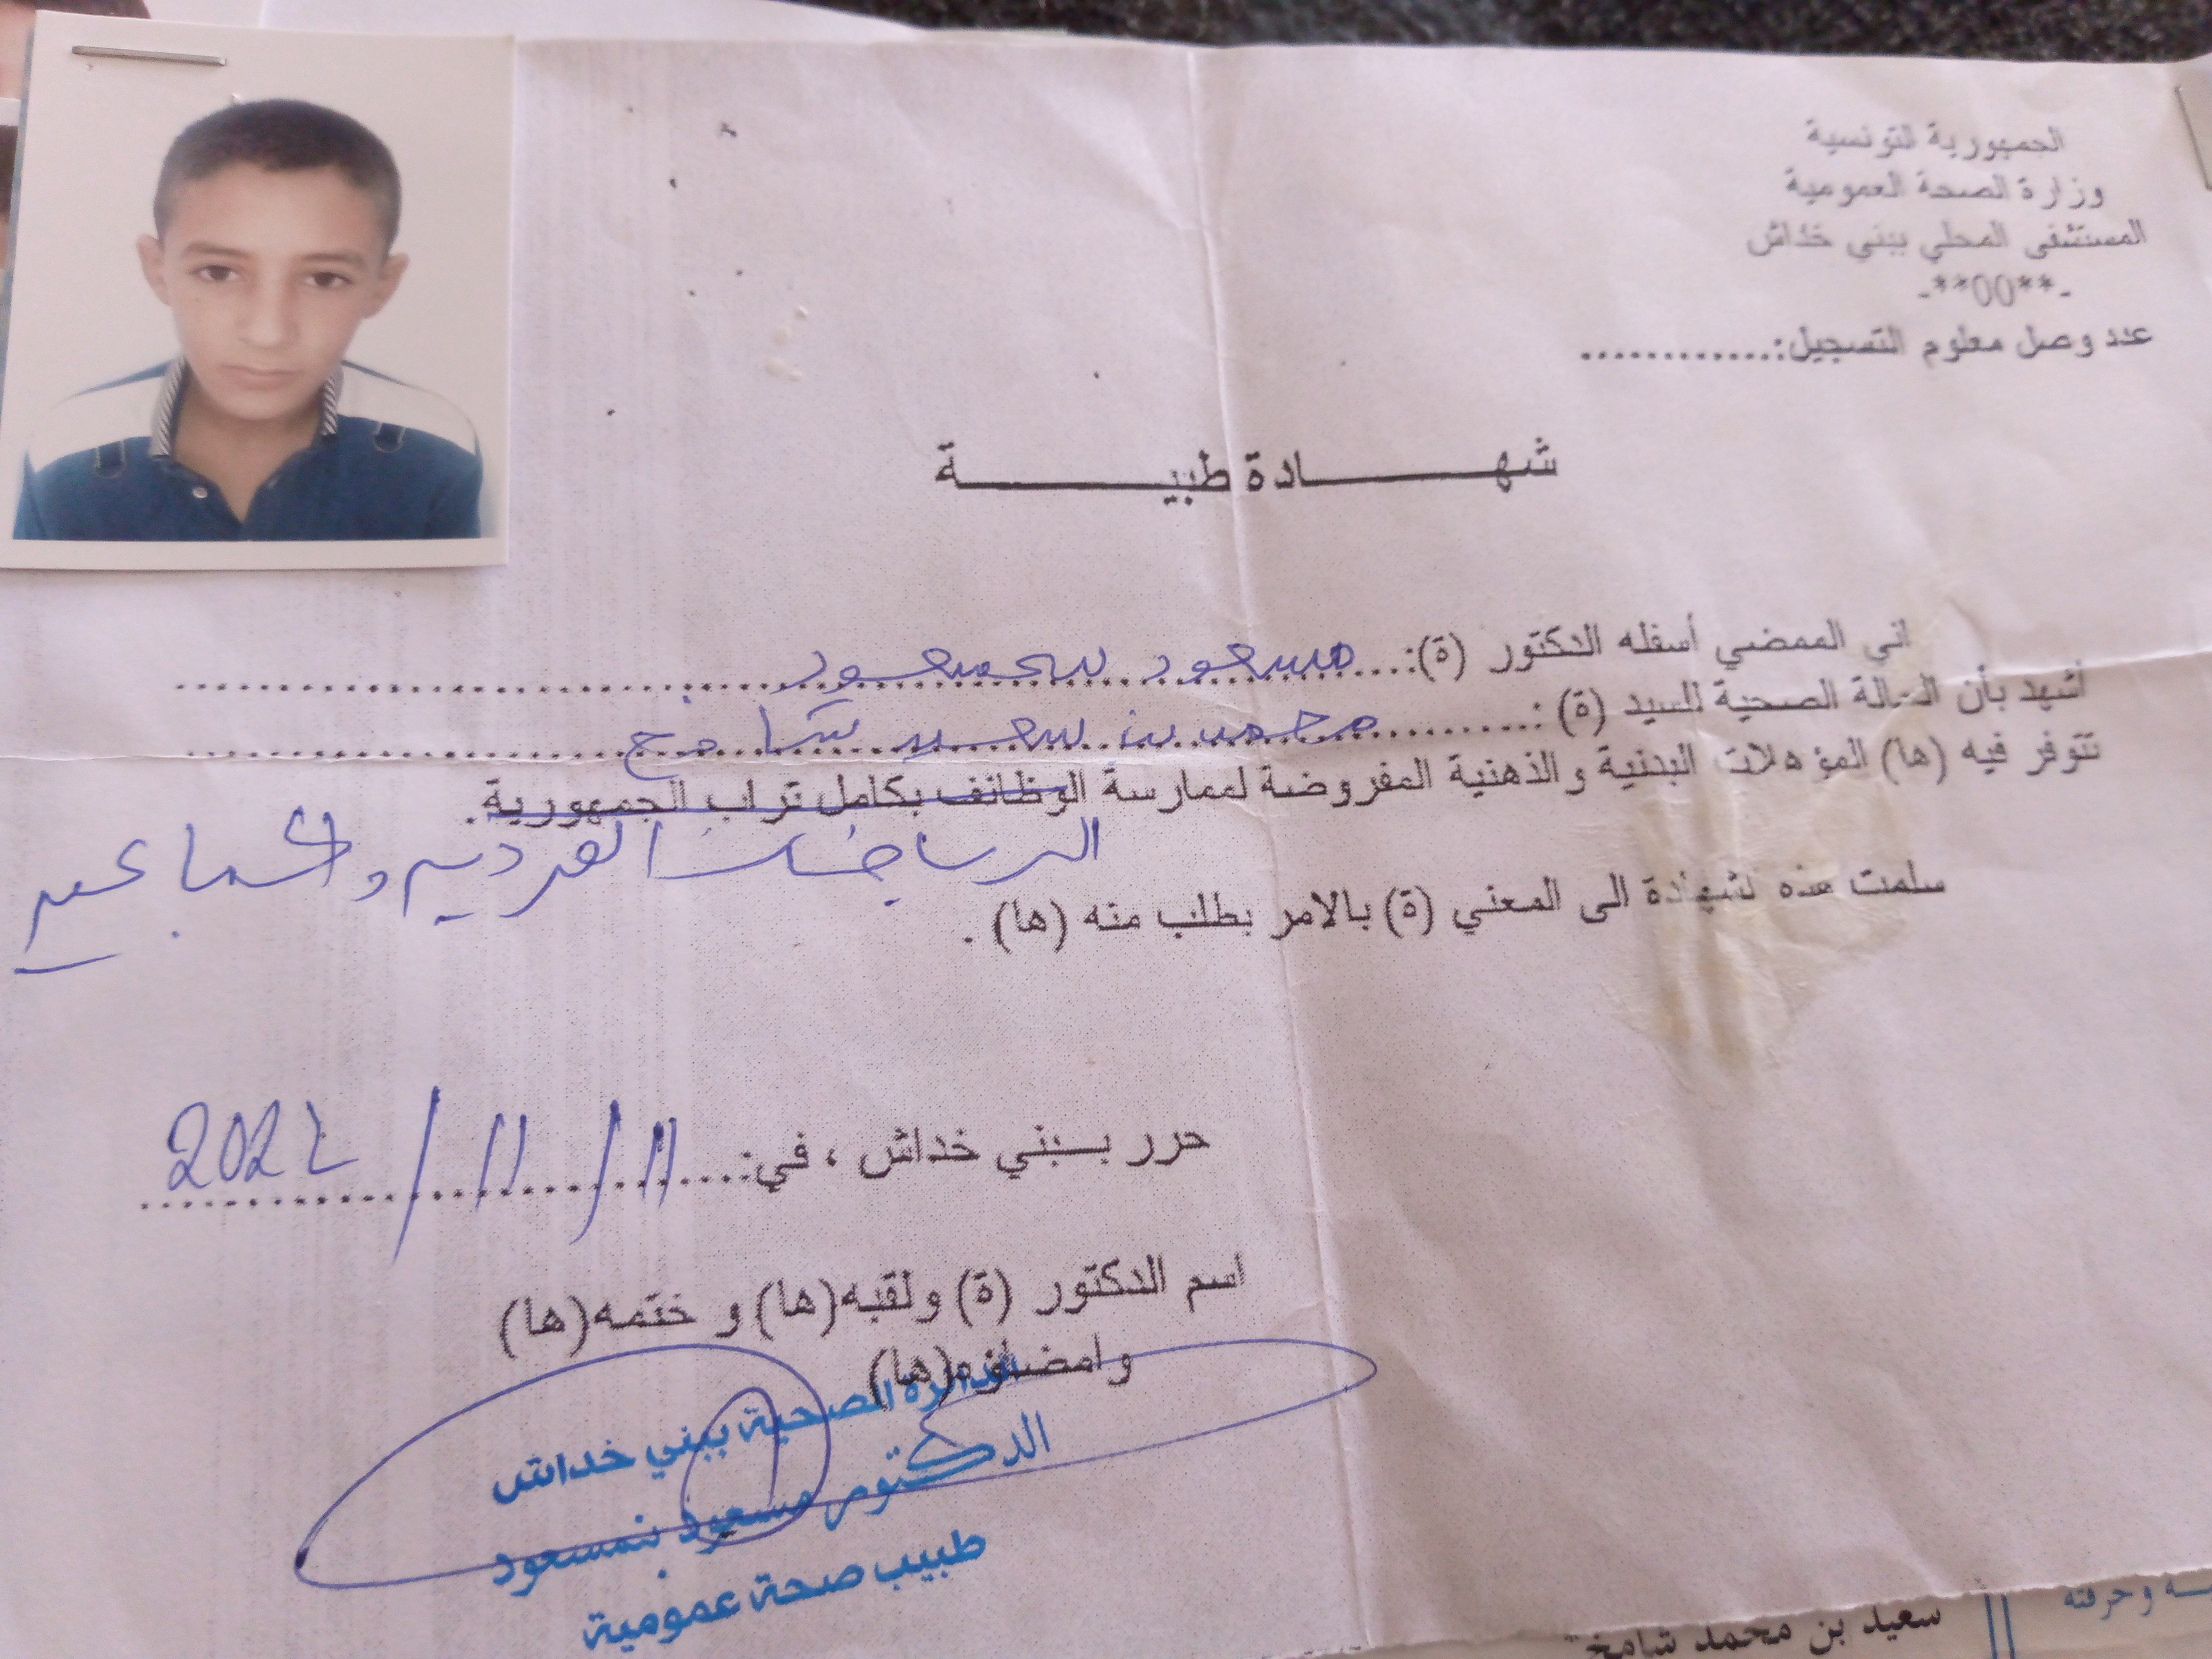 الجمهورية التونسية
وزارة الصحة العمومية
المستشفى المحلي ببني خداش
-**00**-
عدد وصل معلوم التسجيل:.............
شهـــــــــادة طبيـــــــــــة
اني الممضي أسفله الدكتور (ة):... مسعود بنمسعود
أشهد بأن الحالة الصحية للسيد (ة) :.......... محمد بن سعيد شامخ
تتوفر فيه (ها) المؤهلات البدنية والذهنية المفروضة لممارسة الوظائف بكامل تراب الجمهورية.
الرياضات الفردية والجماعية
سلمت هذه الشهادة الى المعني (ة) بالامر بطلب منه (ها) .
حرر بـــبني خداش ، في:... 11/11/2022
اسم الدكتور (ة) ولقبه(ها) و ختمه(ها)
وامضاؤه(ها)
الدائرة الصحية ببني خداش
الدكتور مسعود بنمسعود
طبيب صحة عمومية
ـه وحرفته
سعيد بن محمد شامخ